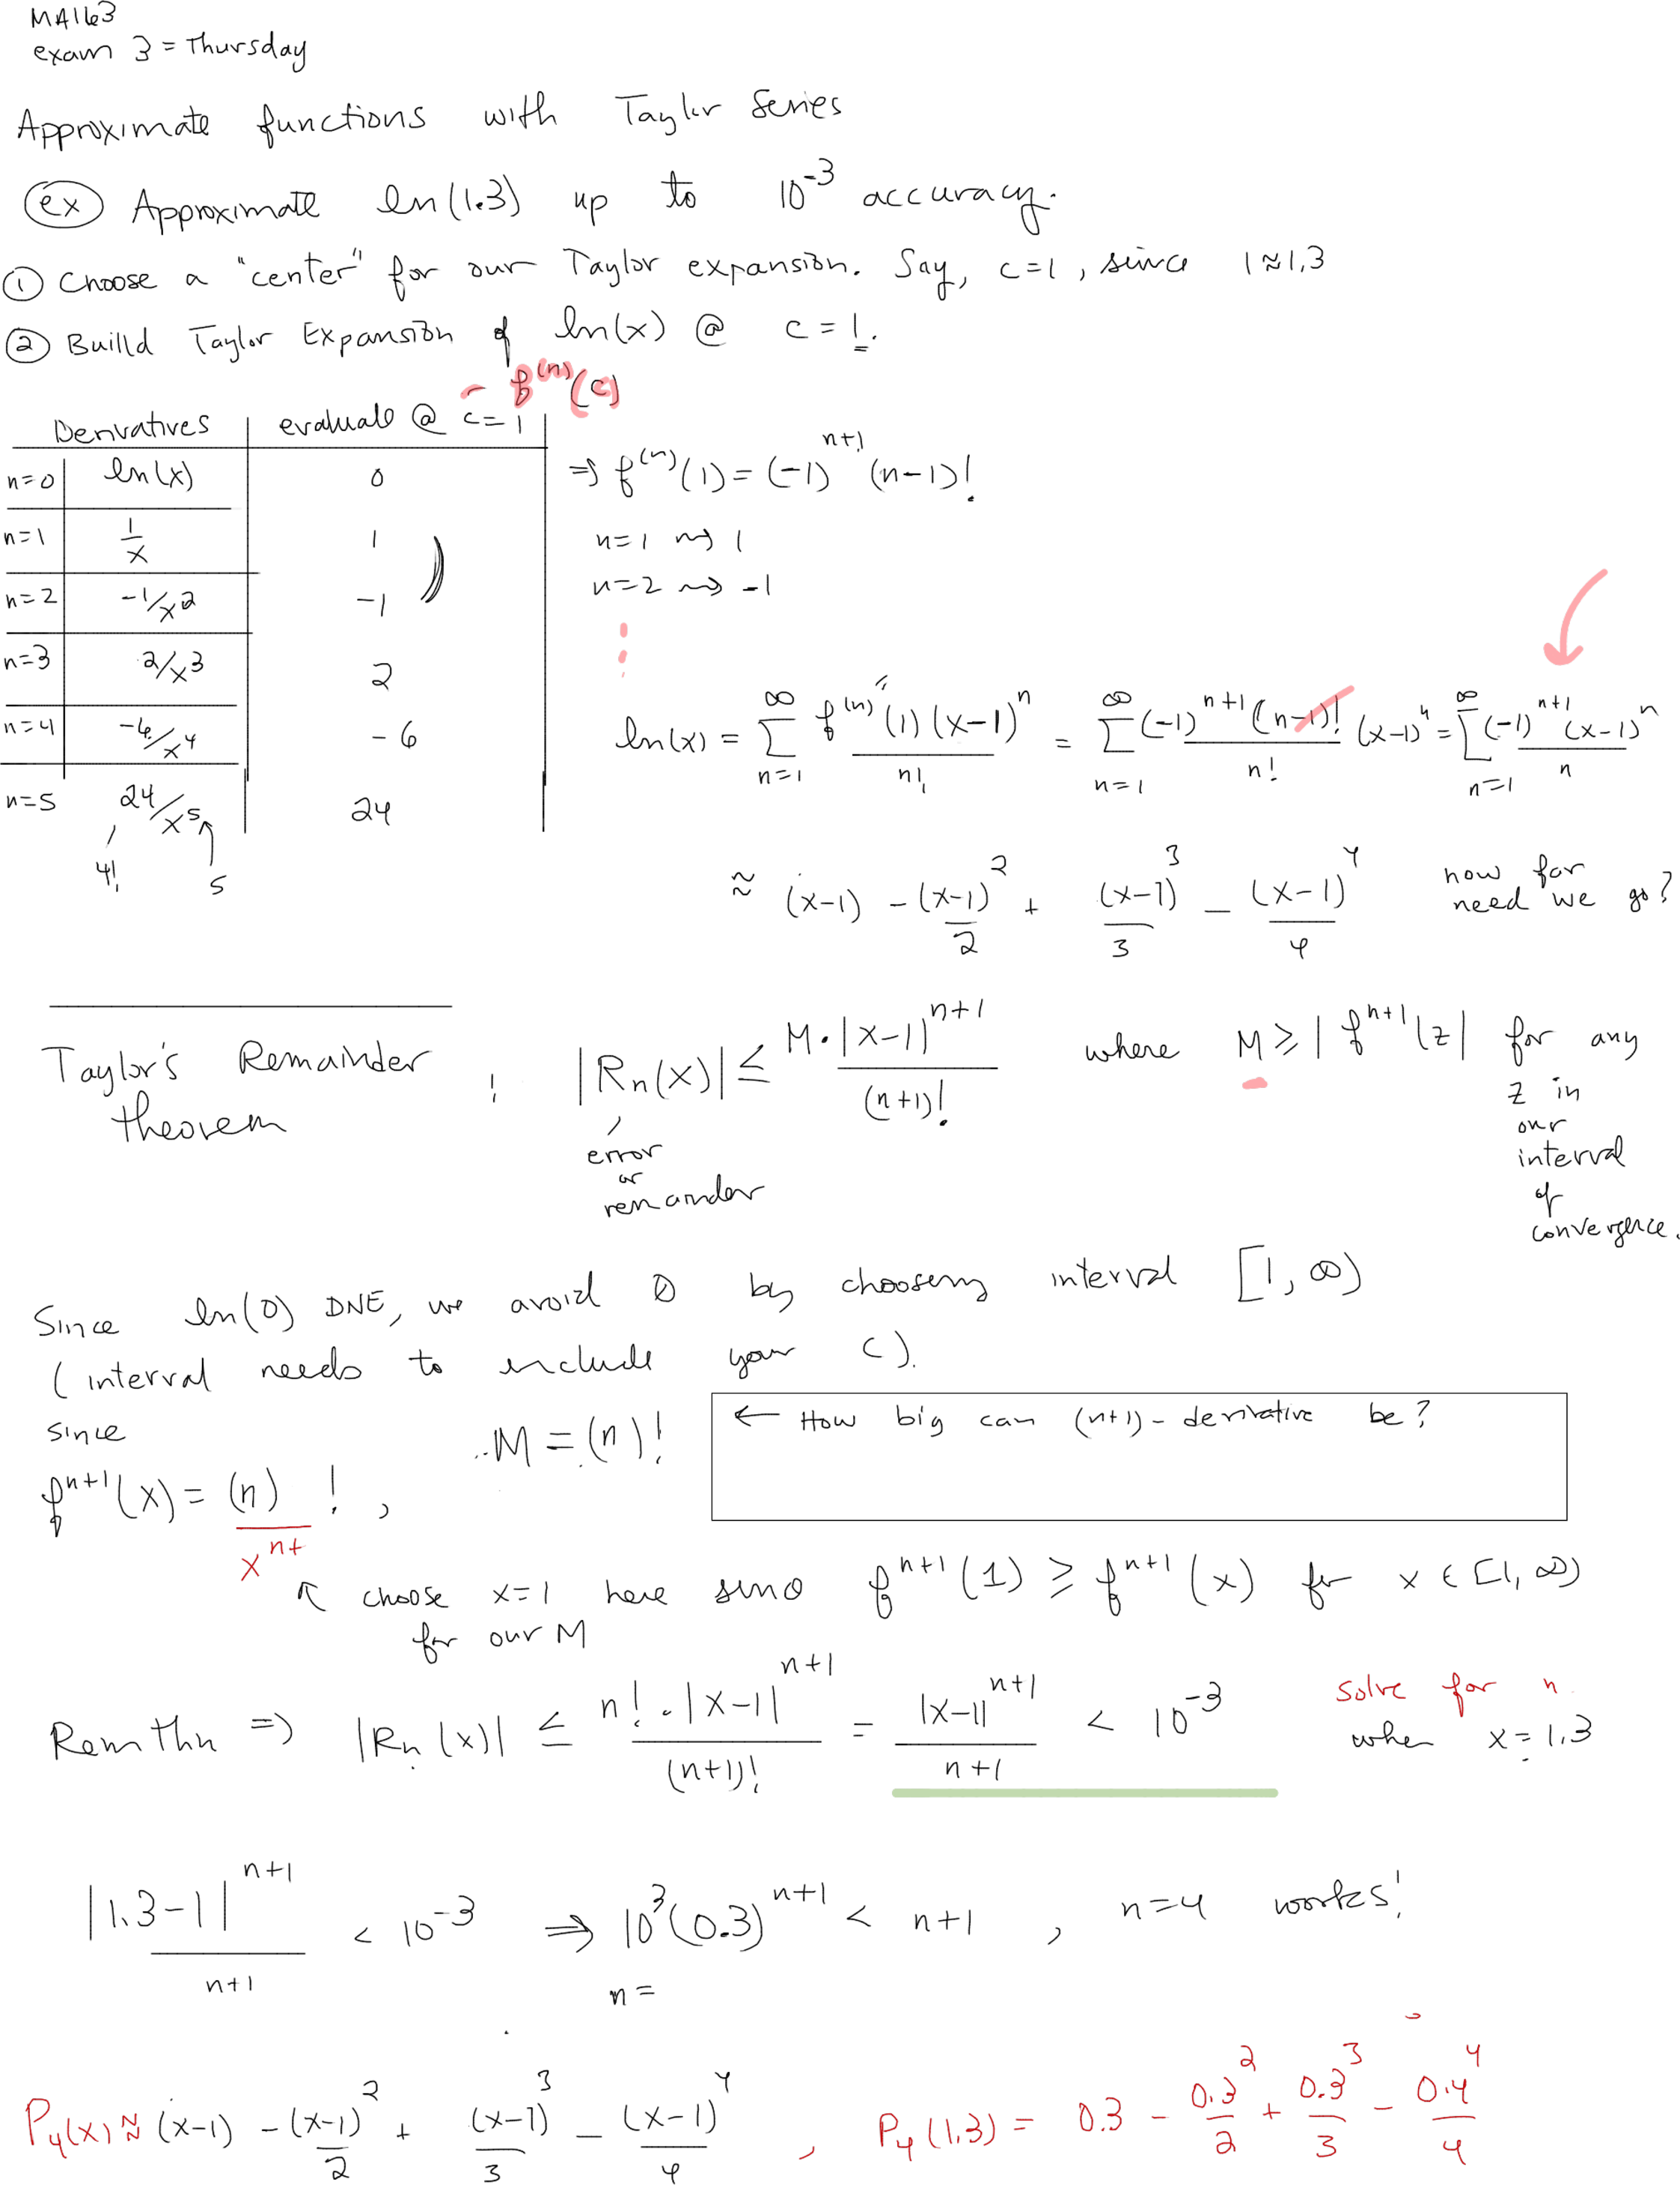 MA163
exam 3 = Thursday
Approximate functions with Taylor Series
ex Approximate ln(1.3) up to 10^-3 accuracy.
① Choose a "center" for our Taylor expansion. Say, c=1, since 1≈1.3
② Builld Taylor Expansion of ln(x) @ c = 1.
f^(n)(c)
Derivatives evaluate @ c=1
n=0 ln(x) 0
n=1 1/x 1
n=2 -1/x^2 -1
n=3 2/x^3 2
n=4 -6/x^4 -6
n=5 24/x^5 24
4! 5
⇒ f^(n)(1) = (-1)^n+1 (n-1)!
n=1 ⇝ 1
n=2 ⇝ -1
ln(x) = ∑_{n=1}^∞ f^(n)(1)(x-1)^n / n! = ∑_{n=1}^∞ (-1)^n+1 (n-1)! / n! (x-1)^n = ∑_{n=1}^∞ (-1)^n+1 (x-1)^n / n
≈ (x-1) - (x-1)^2/2 + (x-1)^3/3 - (x-1)^4/4 how far need we go?
Taylor's Remainder theorem ! |Rn(x)| ≤ M·|x-1|^n+1 / (n+1)! where M ≥ |f^n+1(z| for any z in our interval of convergence.
error or remainder
Since ln(0) DNE, we avoid 0 by choosing interval [1, ∞)
(interval needs to include your c).
since
f^n+1(x) = (n)/x^n+ ! ,
M = (n)!
← How big can (n+1)-derivative be?
↖ choose x=1 here since f^n+1(1) ≥ f^n+1(x) for x ∈ [1, ∞)
for our M
Rem Thm ⇒ |Rn(x)| ≤ n!·|x-1|^n+1 / (n+1)! = |x-1|^n+1 / n+1 < 10^-3 solve for n when x = 1.3
|1.3-1|^n+1 / n+1 < 10^-3 ⇒ 10^3(0.3)^n+1 < n+1 , n=4 works!
n =
P4(x) ≈ (x-1) - (x-1)^2/2 + (x-1)^3/3 - (x-1)^4/4 , P4(1.3) = 0.3 - 0.3^2/2 + 0.3^3/3 - 0.4^4/4